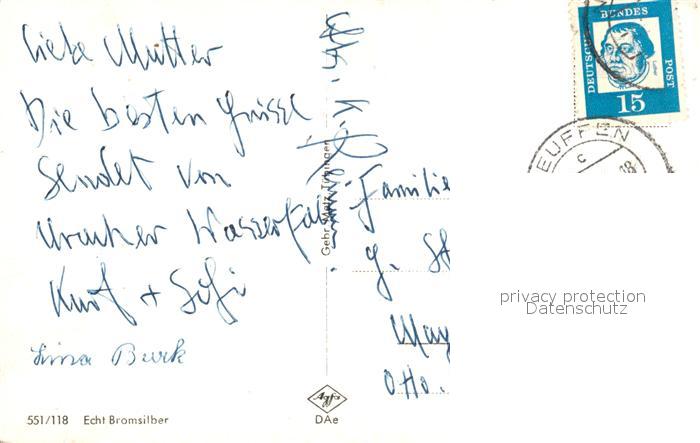 Liebe Mutter
Die besten Grüsse
Sendet von
Uracher Wasserfall
Kurt + Sofi
Lina Burk
551/118 Echt Bromsilber
Gebr. Metz, Tübingen
Agfa
DAe
Familie
g. St
May
Otto.
DEUTSCHE BUNDESPOST
15
EUFFEN
c
privacy protection
Datenschutz